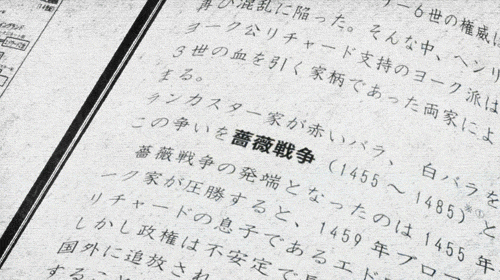 6世の権威は
再び混乱に陥った。そんな中、ヘンリ
ヨーク公リチャード支持のヨーク派は
3世の血を引く家柄であった両家によ
まる。
ランカスター家が赤いバラ、白バラを
この争いを薔薇戦争(1455〜1485)※①と
薔薇戦争の発端となったのは1455年
ーク家が圧勝すると、1459年ブロ
リチャードの息子であるエド
しかし政権は不安定で
国外に追放され
すること